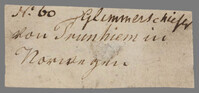 No. 60 Glimmerschiefer
von Trunhiem in
Norwegen